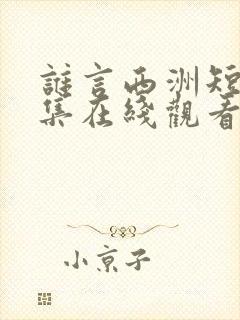 誰言西洲短
集在綫觀看
小京子